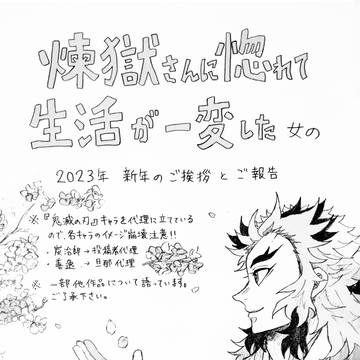 煉獄さんに惚れて
生活が一変した 女の
2023年 新年のご挨拶とご報告
※『鬼滅の刃』キャラを代理に立てている
ので、各キャラのイメージ崩壊注意!!
・炭治郎→投稿者代理
・善逸→旦那代理
※ 一部他作品について語っています。
ご了承下さい。